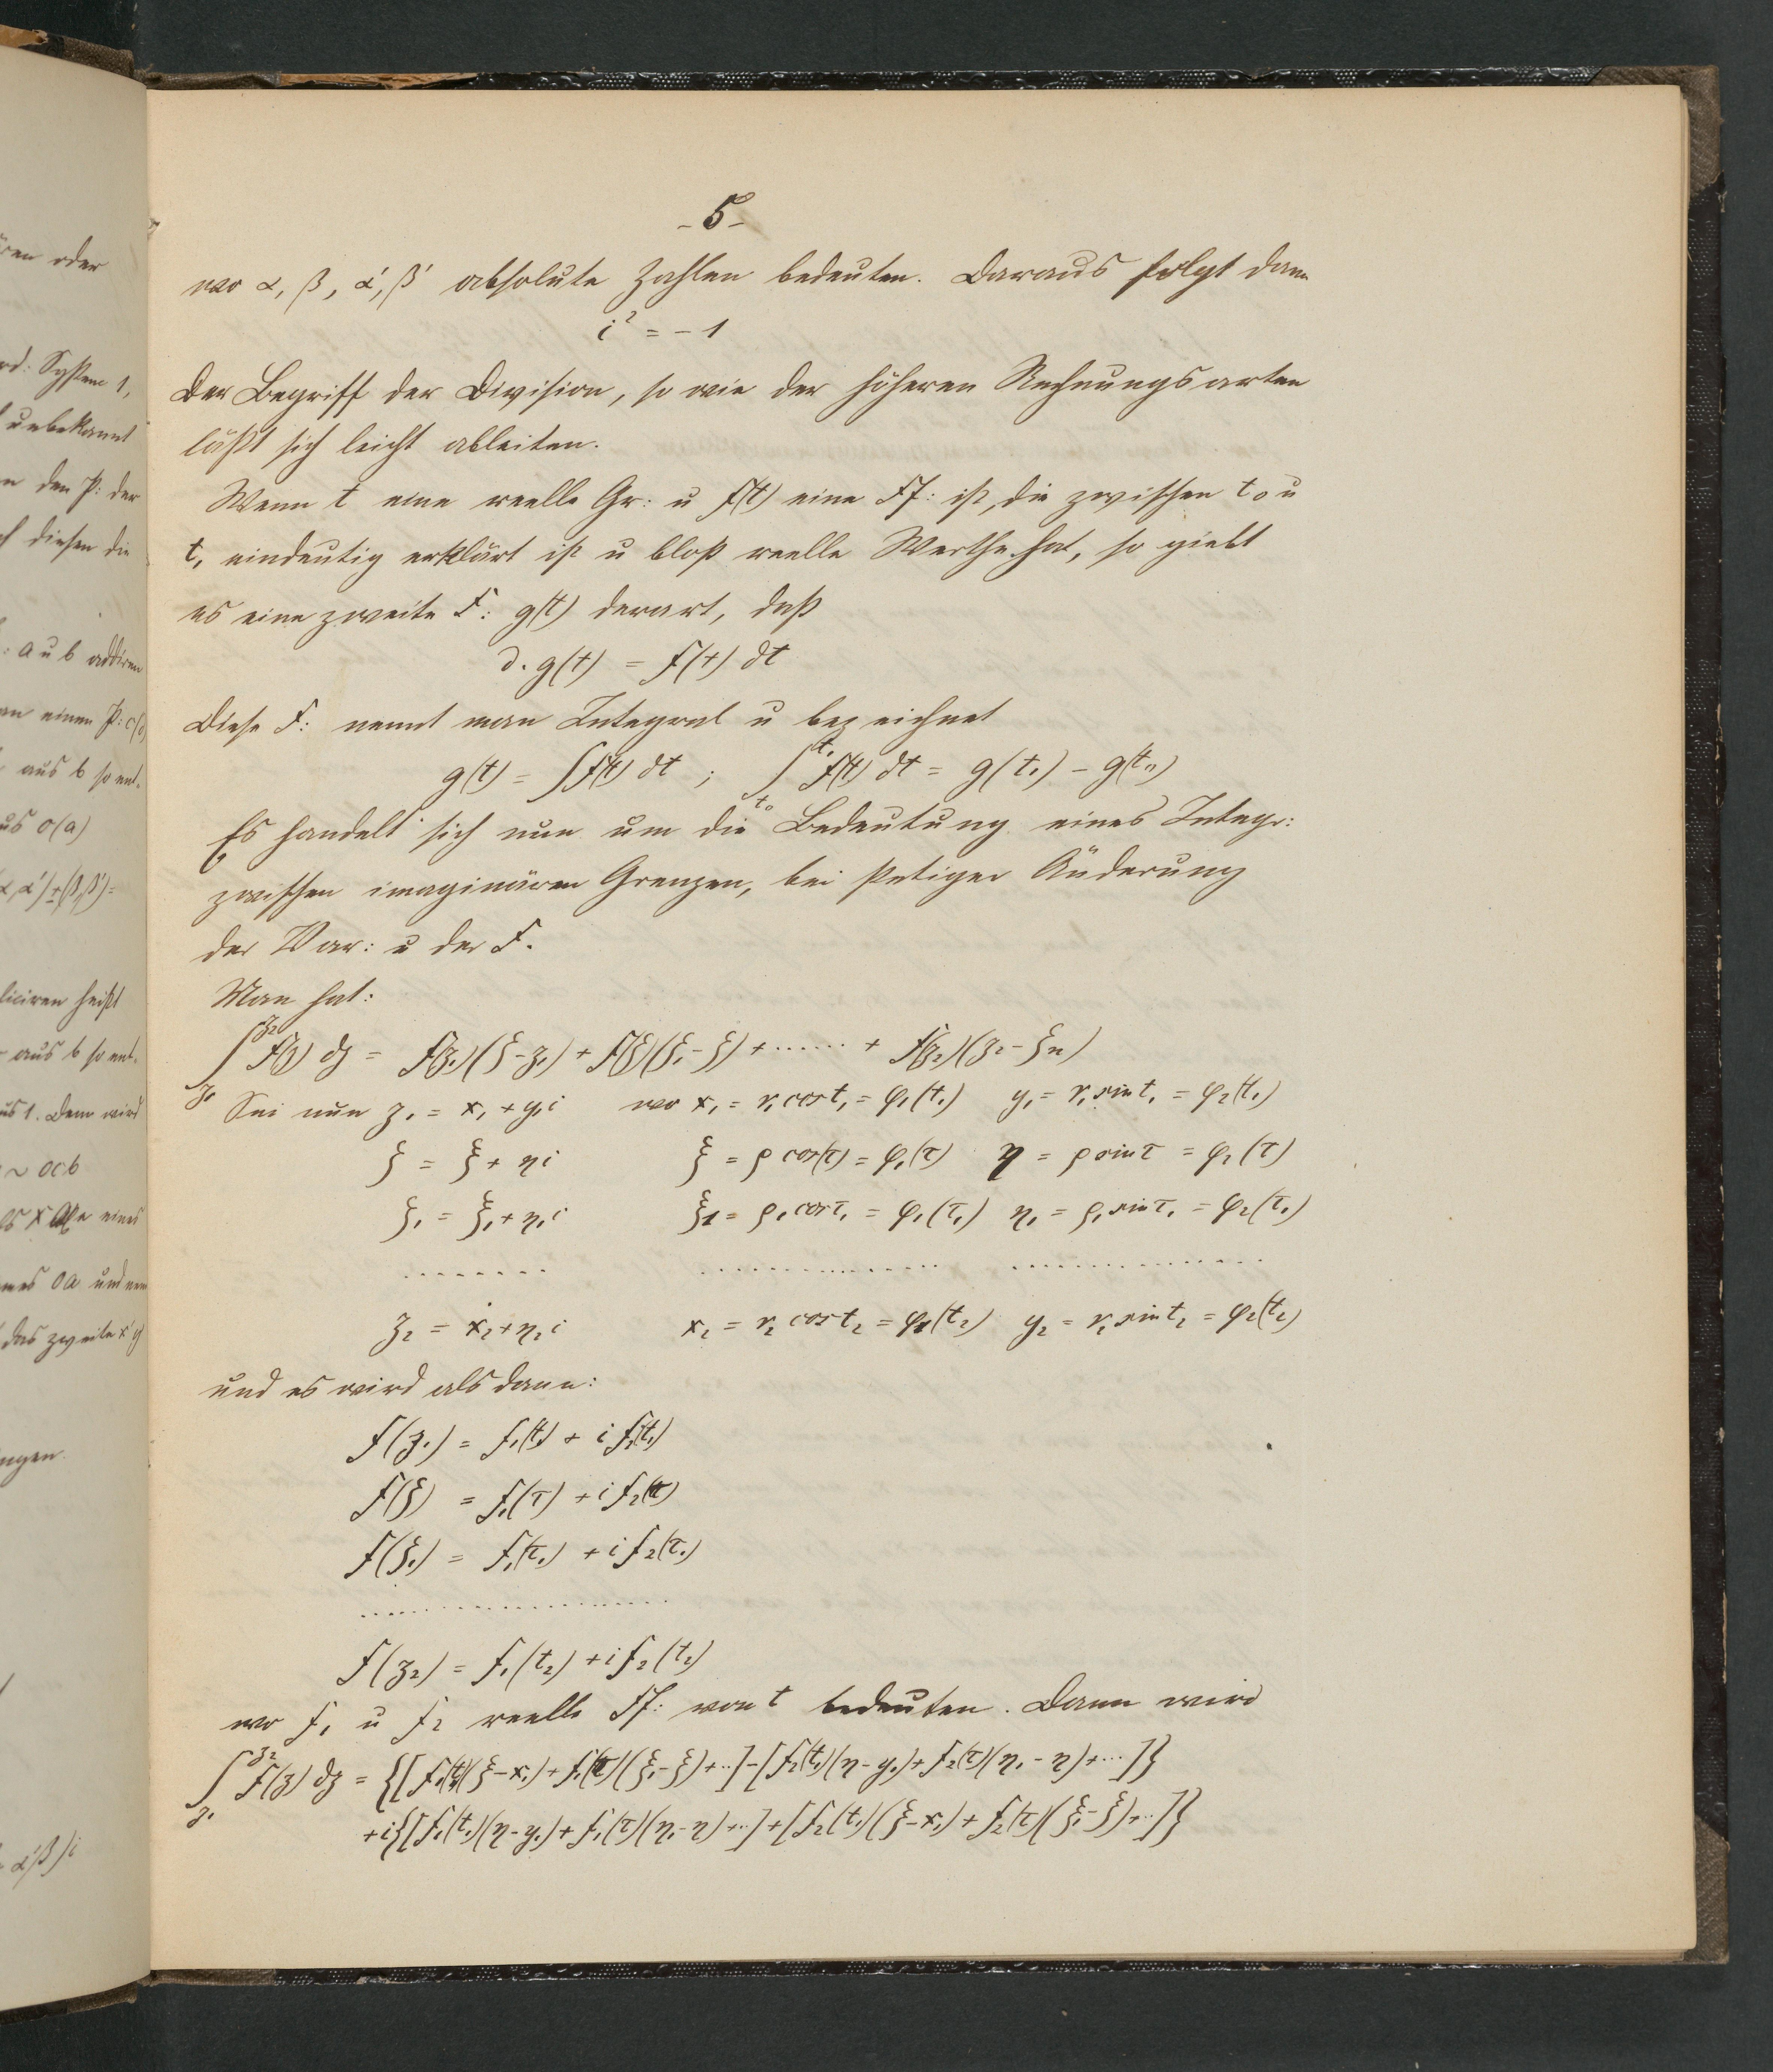 - 5 -
wo α, β, α', β' absolute Zahlen bedeuten. Daraus folgt dann
i² = - 1
Der Begriff der Division, so wie der höheren Rechnungsarten
läßt sich leicht ableiten.
Wenn t eine reelle Gr: u f(t) eine Ff: ist, die zwischen t₀ u
t₁ eindeutig erklärt ist u bloß reelle Werthe hat, so giebt
es eine zweite F: g(t) derart, daß
d. g(t) = f(t) dt
Diese F: nennt man Integral u bezeichnet
g(t) = ∫f(t) dt ; ∫_{t₀}^{t₁} f(t) dt = g(t₁) - g(t₀)
Es handelt sich nun um die Bedeutung eines Integr:
zwischen imaginären Grenzen, bei stetiger Änderung
der Var: u der F.
Man hat:
∫_{z₁}^{z₂} f(z) dz = f(z₁)(ζ-z₁) + f(ζ)(ζ₁-ζ) + ...... + f(z₂)(z₂-ζn)
Sei nun z₁ = x₁ + y₁i wo x₁ = r₁ cos t₁ = φ₁(t₁) y₁ = r₁ sin t₁ = φ₂(t₁)
ζ = ξ + ηi ξ = ρ cos(τ) = φ₁(τ) η = ρ sin τ = φ₂(τ)
ζ₁ = ξ₁ + η₁i ξ₁ = ρ₁ cos τ₁ = φ₁(τ₁) η₁ = ρ₁ sin τ₁ = φ₂(τ₁)
........ .............. ..............
z₂ = x₂ + η₂i x₂ = r₂ cos t₂ = φ₁(t₂) y₂ = r₂ sin t₂ = φ₂(t₂)
und es wird alsdann:
f(z₁) = f₁(t₁) + i f₂(t₁)
f(ζ) = f₁(τ) + i f₂(τ)
f(ζ₁) = f₁(τ₁) + i f₂(τ₁)
....................
f(z₂) = f₁(t₂) + i f₂(t₂)
wo f₁ u f₂ reelle Ff: von t bedeuten. Dann wird
∫_{z₁}^{z₂} f(z) dz = {[f₁(t₁)(ξ-x₁) + f₁(τ)(ξ₁-ξ)+..] - [f₂(t₁)(η-y₁) + f₂(τ)(η₁-η)+...]}
+i{[f₁(t₁)(η-y₁) + f₁(τ)(η₁-η)+..] + [f₂(t₁)(ξ-x₁) + f₂(τ)(ξ₁-ξ)+..]}